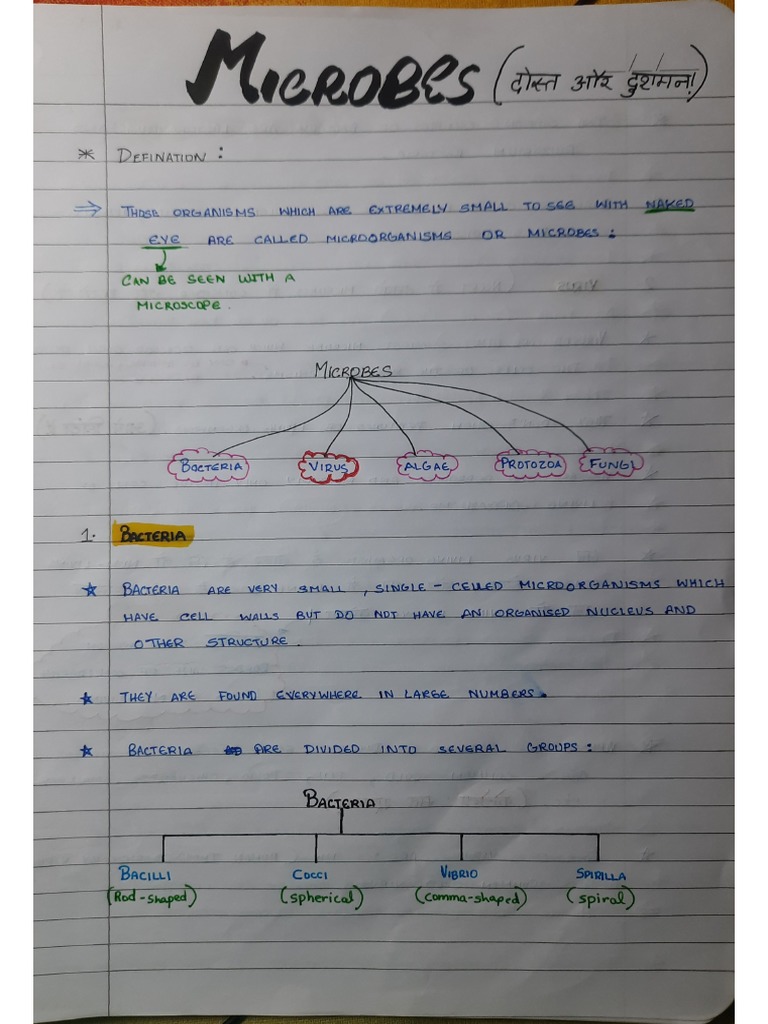 MICROBES (दोस्त और दुशमन!)
* DEFINATION :
⇒ THOSE ORGANISMS WHICH ARE EXTREMELY SMALL TO SEE WITH NAKED
EYE ARE CALLED MICROORGANISMS OR MICROBES :
CAN BE SEEN WITH A
MICROSCOPE .
MICROBES
BACTERIA VIRUS ALGAE PROTOZOA FUNGI
1. BACTERIA
☆ BACTERIA ARE VERY SMALL , SINGLE - CELLED MICROORGANISMS WHICH
HAVE CELL WALLS BUT DO NOT HAVE AN ORGANISED NUCLEUS AND
OTHER STRUCTURE .
☆ THEY ARE FOUND EVERYWHERE IN LARGE NUMBERS .
☆ BACTERIA ARE DIVIDED INTO SEVERAL GROUPS :
BACTERIA
BACILLI COCCI VIBRIO SPIRILLA
(Rod-shaped) (spherical) (comma-shaped) (spiral)